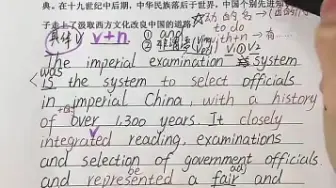 典。在十九世纪中后期，中华民族落后于世界，中国个别先进知
子走上了汲取西方文化改良中国的道路
具体V V+n. ① and
to do
with+n → 有
② V① V②
The imperial examination system
was
is the system to select officials
in imperial China, with a history
of over 1,300 years. It closely
integrated reading, examinations
and selection of government officials
be adj
and represented a fair and